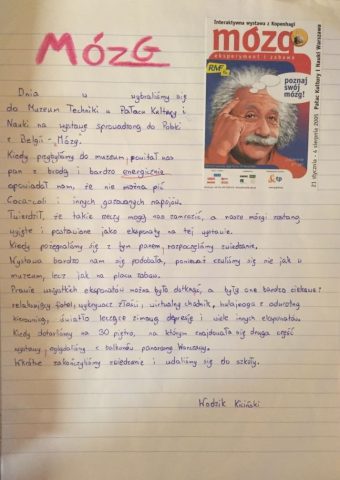 MÓZG
Interaktywna wystawa z Kopenhagi
mózg
eksperyment i zabawa
RMF FM
poznaj
swój
mózg!
tp
21 stycznia - 4 sierpnia 2005 Pałac Kultury i Nauki Warszawa
Dnia w wybraliśmy się
do Muzeum Techniki w Pałacu Kultury i
Nauki na wystawę sprowadzoną do Polski
z Belgii - Mózg.
Kiedy przybyliśmy do muzeum, powitał nas
pan z brodą i bardzo energicznie
opowiadał nam, że nie można pić
Coca-coli i innych gazowanych napojów.
Twierdził, że takie rzeczy mogą nas zamrozić, a nasze mózgi zostaną
wyjęte i postawione jako eksponaty na tej wystawie.
Kiedy pożegnaliśmy się z tym panem, rozpoczęliśmy zwiedzanie.
Wystawa bardzo nam się podobała, ponieważ czuliśmy się nie jak w
muzeum, lecz jak na placu zabaw.
Prawie wszystkich eksponatów można było dotknąć, a były one bardzo ciekawe:
relaksujący fotel, wykrywacz złości, wirtualny chodnik, hulajnoga z odwrotną
kierownicą, światło leczące zimową depresję i wiele innych eksponatów.
Kiedy dotarliśmy na 30 piętro, na którym znajdowała się druga część
wystawy, oglądaliśmy z balkonów panoramę Warszawy.
Wkrótce zakończyliśmy zwiedzanie i udaliśmy się do szkoły.
Wodzik Kiciński